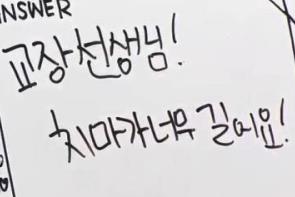 ANSWER
교장선생님!
치마가너무 길어요!